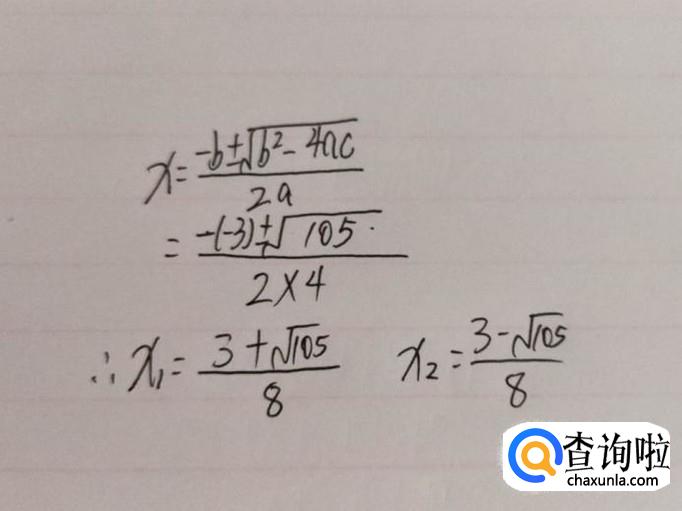 x=(-b±√(b²-4ac))/(2a)
=(-(-3)±√105)/(2×4)
∴x₁=(3+√105)/8 x₂=(3-√105)/8
查询啦
chaxunla.com